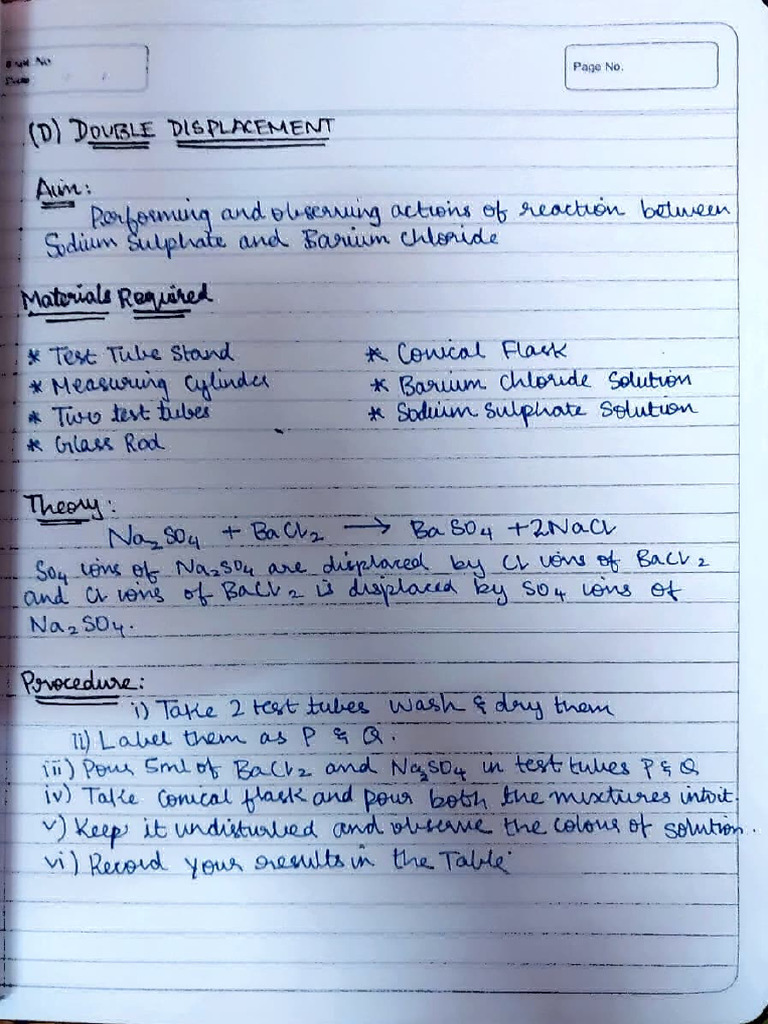 Page No.
(D) DOUBLE DISPLACEMENT
Aim:
Performing and observing actions of reaction between
Sodium Sulphate and Barium Chloride
Materials Required
* Test Tube Stand
* Measuring Cylinder
* Two test tubes
* Glass Rod
* Conical Flask
* Barium Chloride Solution
* Sodium Sulphate Solution
Theory:
Na₂SO₄ + BaCl₂ → BaSO₄ + 2NaCl
SO₄ ions of Na₂SO₄ are displaced by Cl ions of BaCl₂
and Cl ions of BaCl₂ is displaced by SO₄ ions of
Na₂SO₄.
Procedure:
i) Take 2 test tubes wash & dry them
ii) Label them as P & Q.
iii) Pour 5ml of BaCl₂ and Na₂SO₄ in test tubes P & Q
iv) Take conical flask and pour both the mixtures into it.
v) Keep it undisturbed and observe the colour of solution.
vi) Record your results in the Table